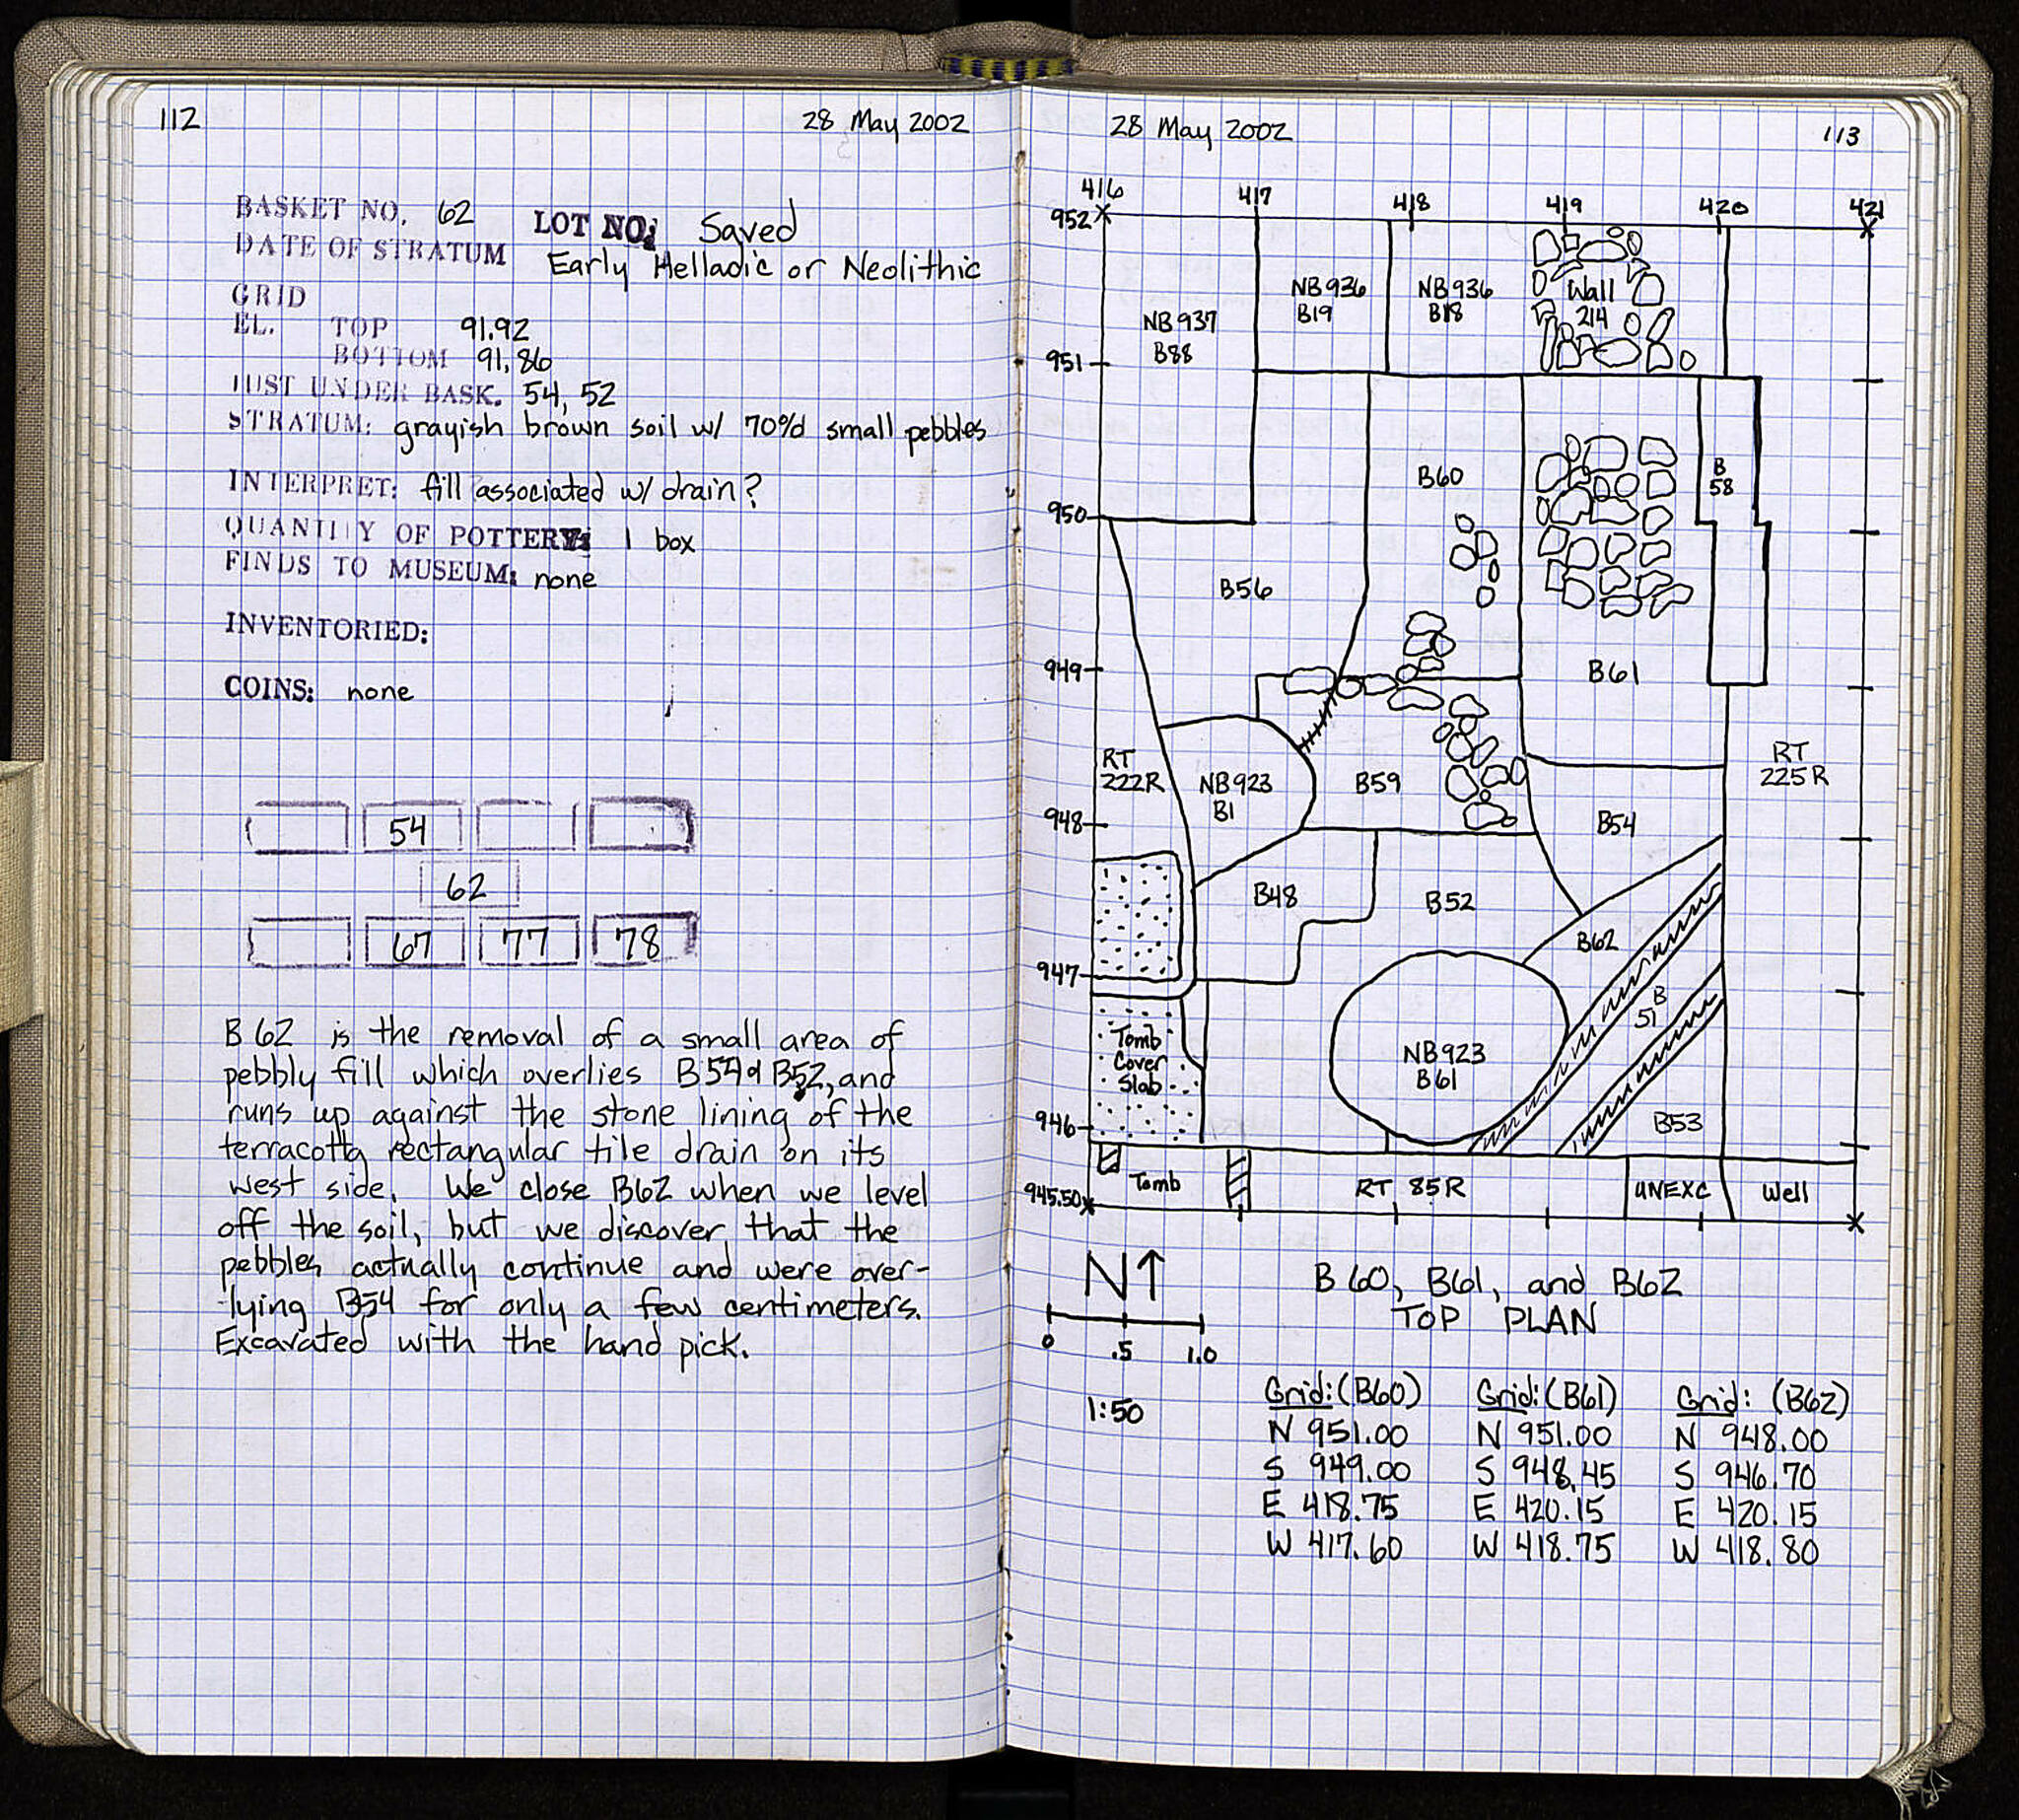 112
28 May 2002
BASKET NO. 62 LOT NO: Saved
DATE OF STRATUM Early Helladic or Neolithic
GRID
EL. TOP 91.92
BOTTOM 91.86
JUST UNDER BASK. 54, 52
STRATUM: grayish brown soil w/ 70%d small pebbles
INTERPRET: fill associated w/ drain?
QUANTITY OF POTTERY: 1 box
FINDS TO MUSEUM: none
INVENTORIED:
COINS: none
54
62
67 77 78
B 62 is the removal of a small area of
pebbly fill which overlies B54 B52, and
runs up against the stone lining of the
terracotta rectangular tile drain on its
west side. We close B62 when we level
off the soil, but we discover that the
pebbles actually continue and were over-
-lying B54 for only a few centimeters.
Excavated with the hand pick.
28 May 2002
113
416 417 418 419 420 421
952
951
950
949
948
947
946
945.50
NB 937
B88
NB 936
B19
NB 936
B18
Wall
214
B60
B
58
B56
B61
RT
222R
NB 923
B1
B59
RT
225R
B54
B48
B52
B62
B
51
Tomb
Cover
Slab
NB 923
B61
B53
Tomb
RT 85R
UNEXC
Well
N↑
0 .5 1.0
1:50
B 60, B61, and B62
TOP PLAN
Grid: (B60) Grid: (B61) Grid: (B62)
N 951.00 N 951.00 N 948.00
S 949.00 S 948.45 S 946.70
E 418.75 E 420.15 E 420.15
W 417.60 W 418.75 W 418.80